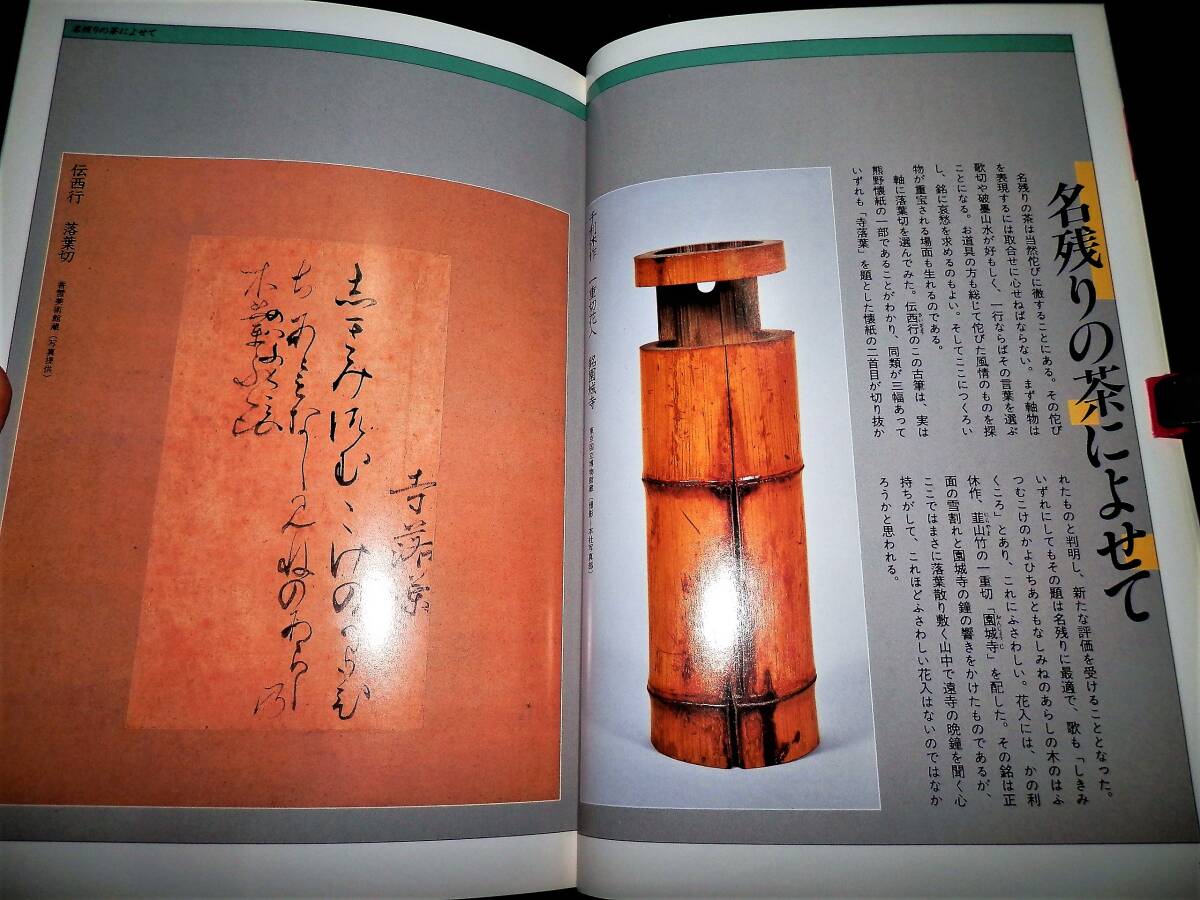 名残りの茶によせて
名残りの茶は当然佗びに徹することにある。その佗び
を表現するには取合せに心せねばならない。まず軸物は
歌切や破墨山水が好もしく、一行ならばその言葉を選ぶ
ことになる。お道具の方も総じて佗びた風情のものを探
し、銘に哀愁を求めるのもよい。そしてここにつくろい
物が重宝される場面も生れるのである。
軸に落葉切を選んでみた。伝西行のこの古筆は、実は
熊野懐紙の一部であることがわかり、同類が三幅あって
いずれも「寺落葉」を題とした懐紙の二首目が切り抜か
れたものと判明し、新たな評価を受けることとなった。
いずれにしてもその題は名残りに最適で、歌も「しきみ
つむこけのかよひぢあともなしみねのあらしの木のはふ
くころ」とあり、これにふさわしい。花入には、かの利
休作、韮山竹の一重切「園城寺」を配した。その銘は正
面の雪割れと園城寺の鐘の響きをかけたものであるが、
ここではまさに落葉散り敷く山中で遠寺の晩鐘を聞く心
持ちがして、これほどふさわしい花入はないのではなか
ろうかと思われる。
千利休作 一重切花入 銘園城寺 東京国立博物館蔵(撮影—本社写真部)
名残りの茶によせて
寺落葉
伝西行 落葉切 香雪美術館蔵(写真提供)